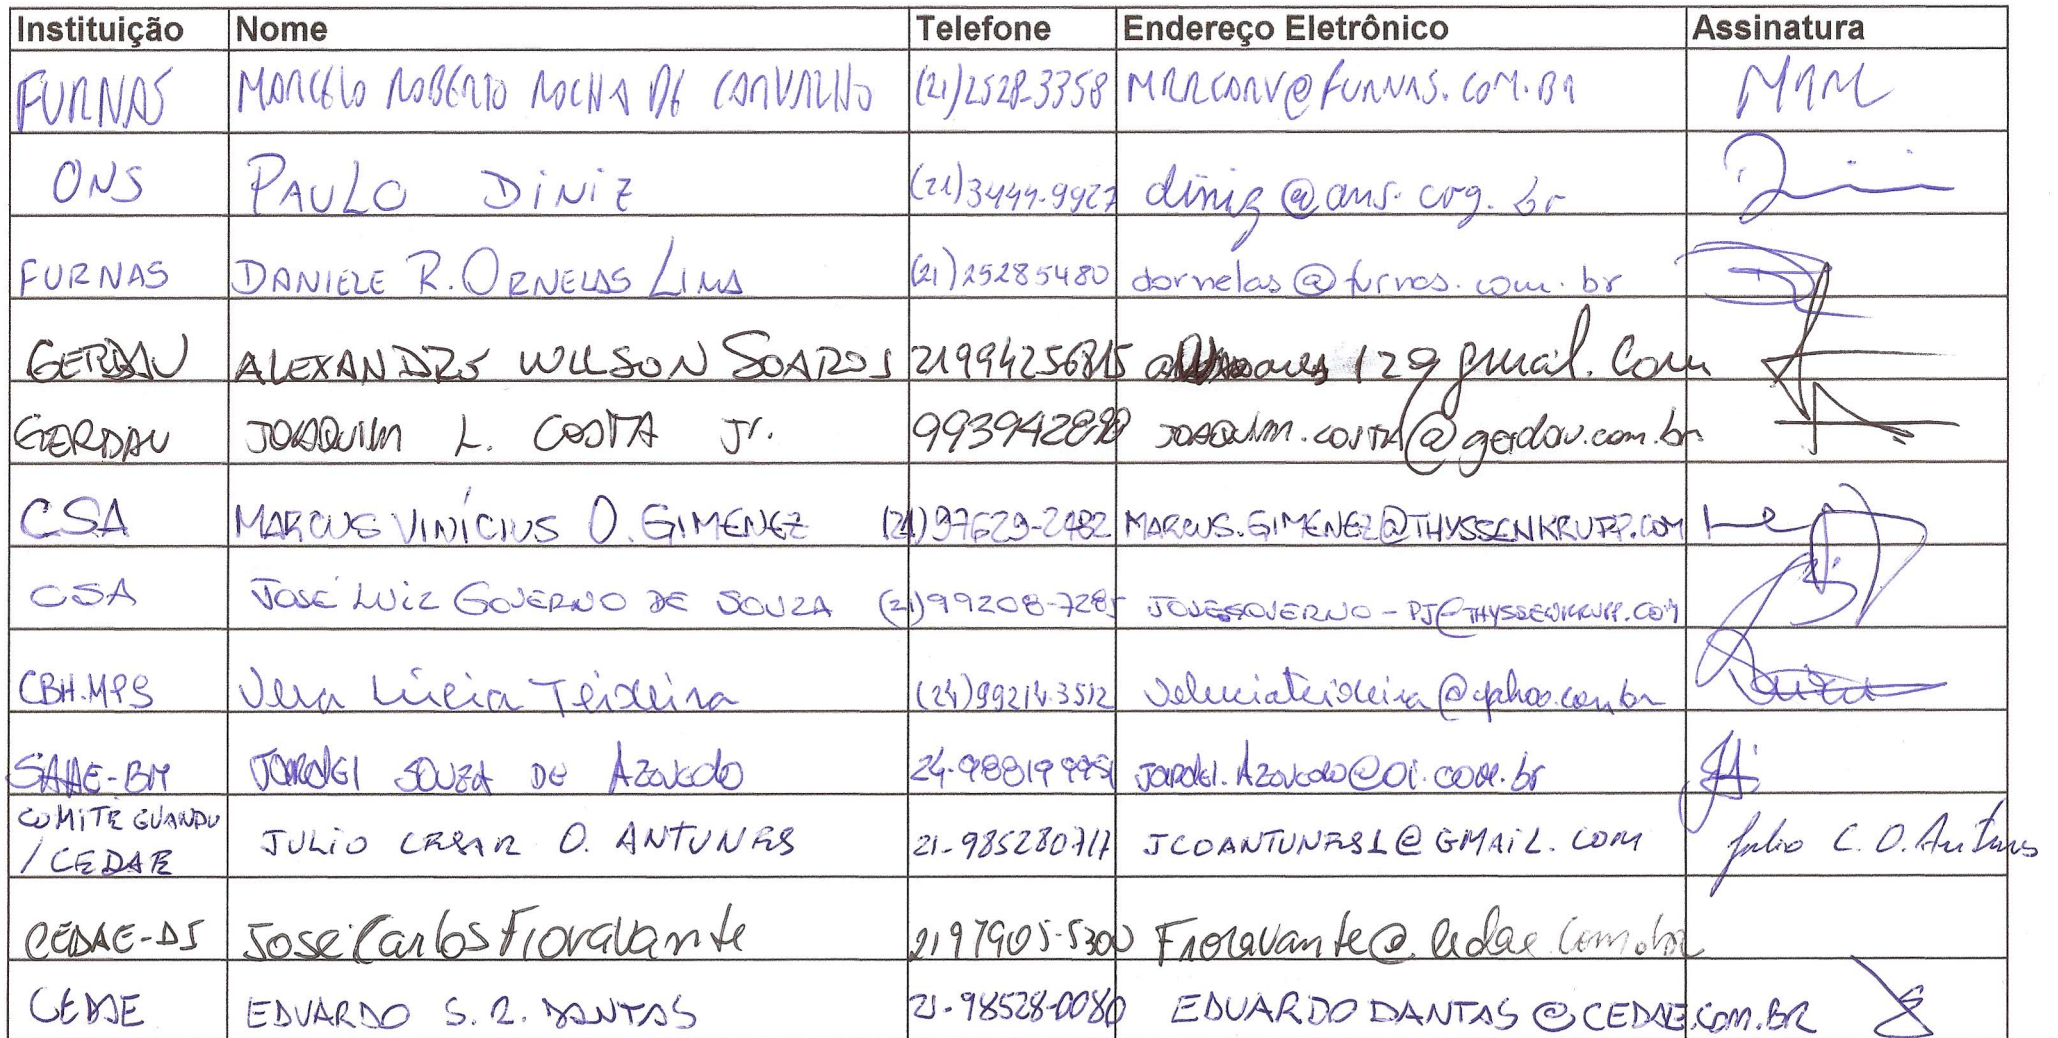 Instituição Nome Telefone Endereço Eletrônico Assinatura
FURNAS MARCELO ROBERTO ROCHA DE CARVALHO (21)2528-3358 MRRCARV@FURNAS.COM.BR
ONS PAULO DINIZ (21)3444-9927 diniz@ons.org.br
FURNAS DANIELE R. ORNELAS LIMA (21)25285480 dornelas@furnas.com.br
GERDAU ALEXANDRE WILSON SOARES 21994256815
GERDAU JOAQUIM L. COSTA Jr. JOAQUIM.COSTA@gerdau.com.br
CSA MARCUS VINÍCIUS O. GIMENEZ (21)97629-2482 MARCUS.GIMENEZ@THYSSENKRUPP.COM
CSA JOSÉ LUIZ GOVERNO DE SOUZA (21)99208-7285
CBH.MPS Vera Lúcia Teixeira (24)99214.3512
SAAE-BM JORDEI SOUZA DE AZEVEDO
COMITÊ GUANDU
/ CEDAE JULIO CESAR O. ANTUNES JCOANTUNES1@GMAIL.COM Julio C. O. Antunes
CEDAE-DS José Carlos Fioravante 2197905-5300 Fioravante@cedae.com.br
CEDAE EDUARDO S. R. DANTAS 21-98528-0080 EDUARDODANTAS@CEDAE.COM.BR